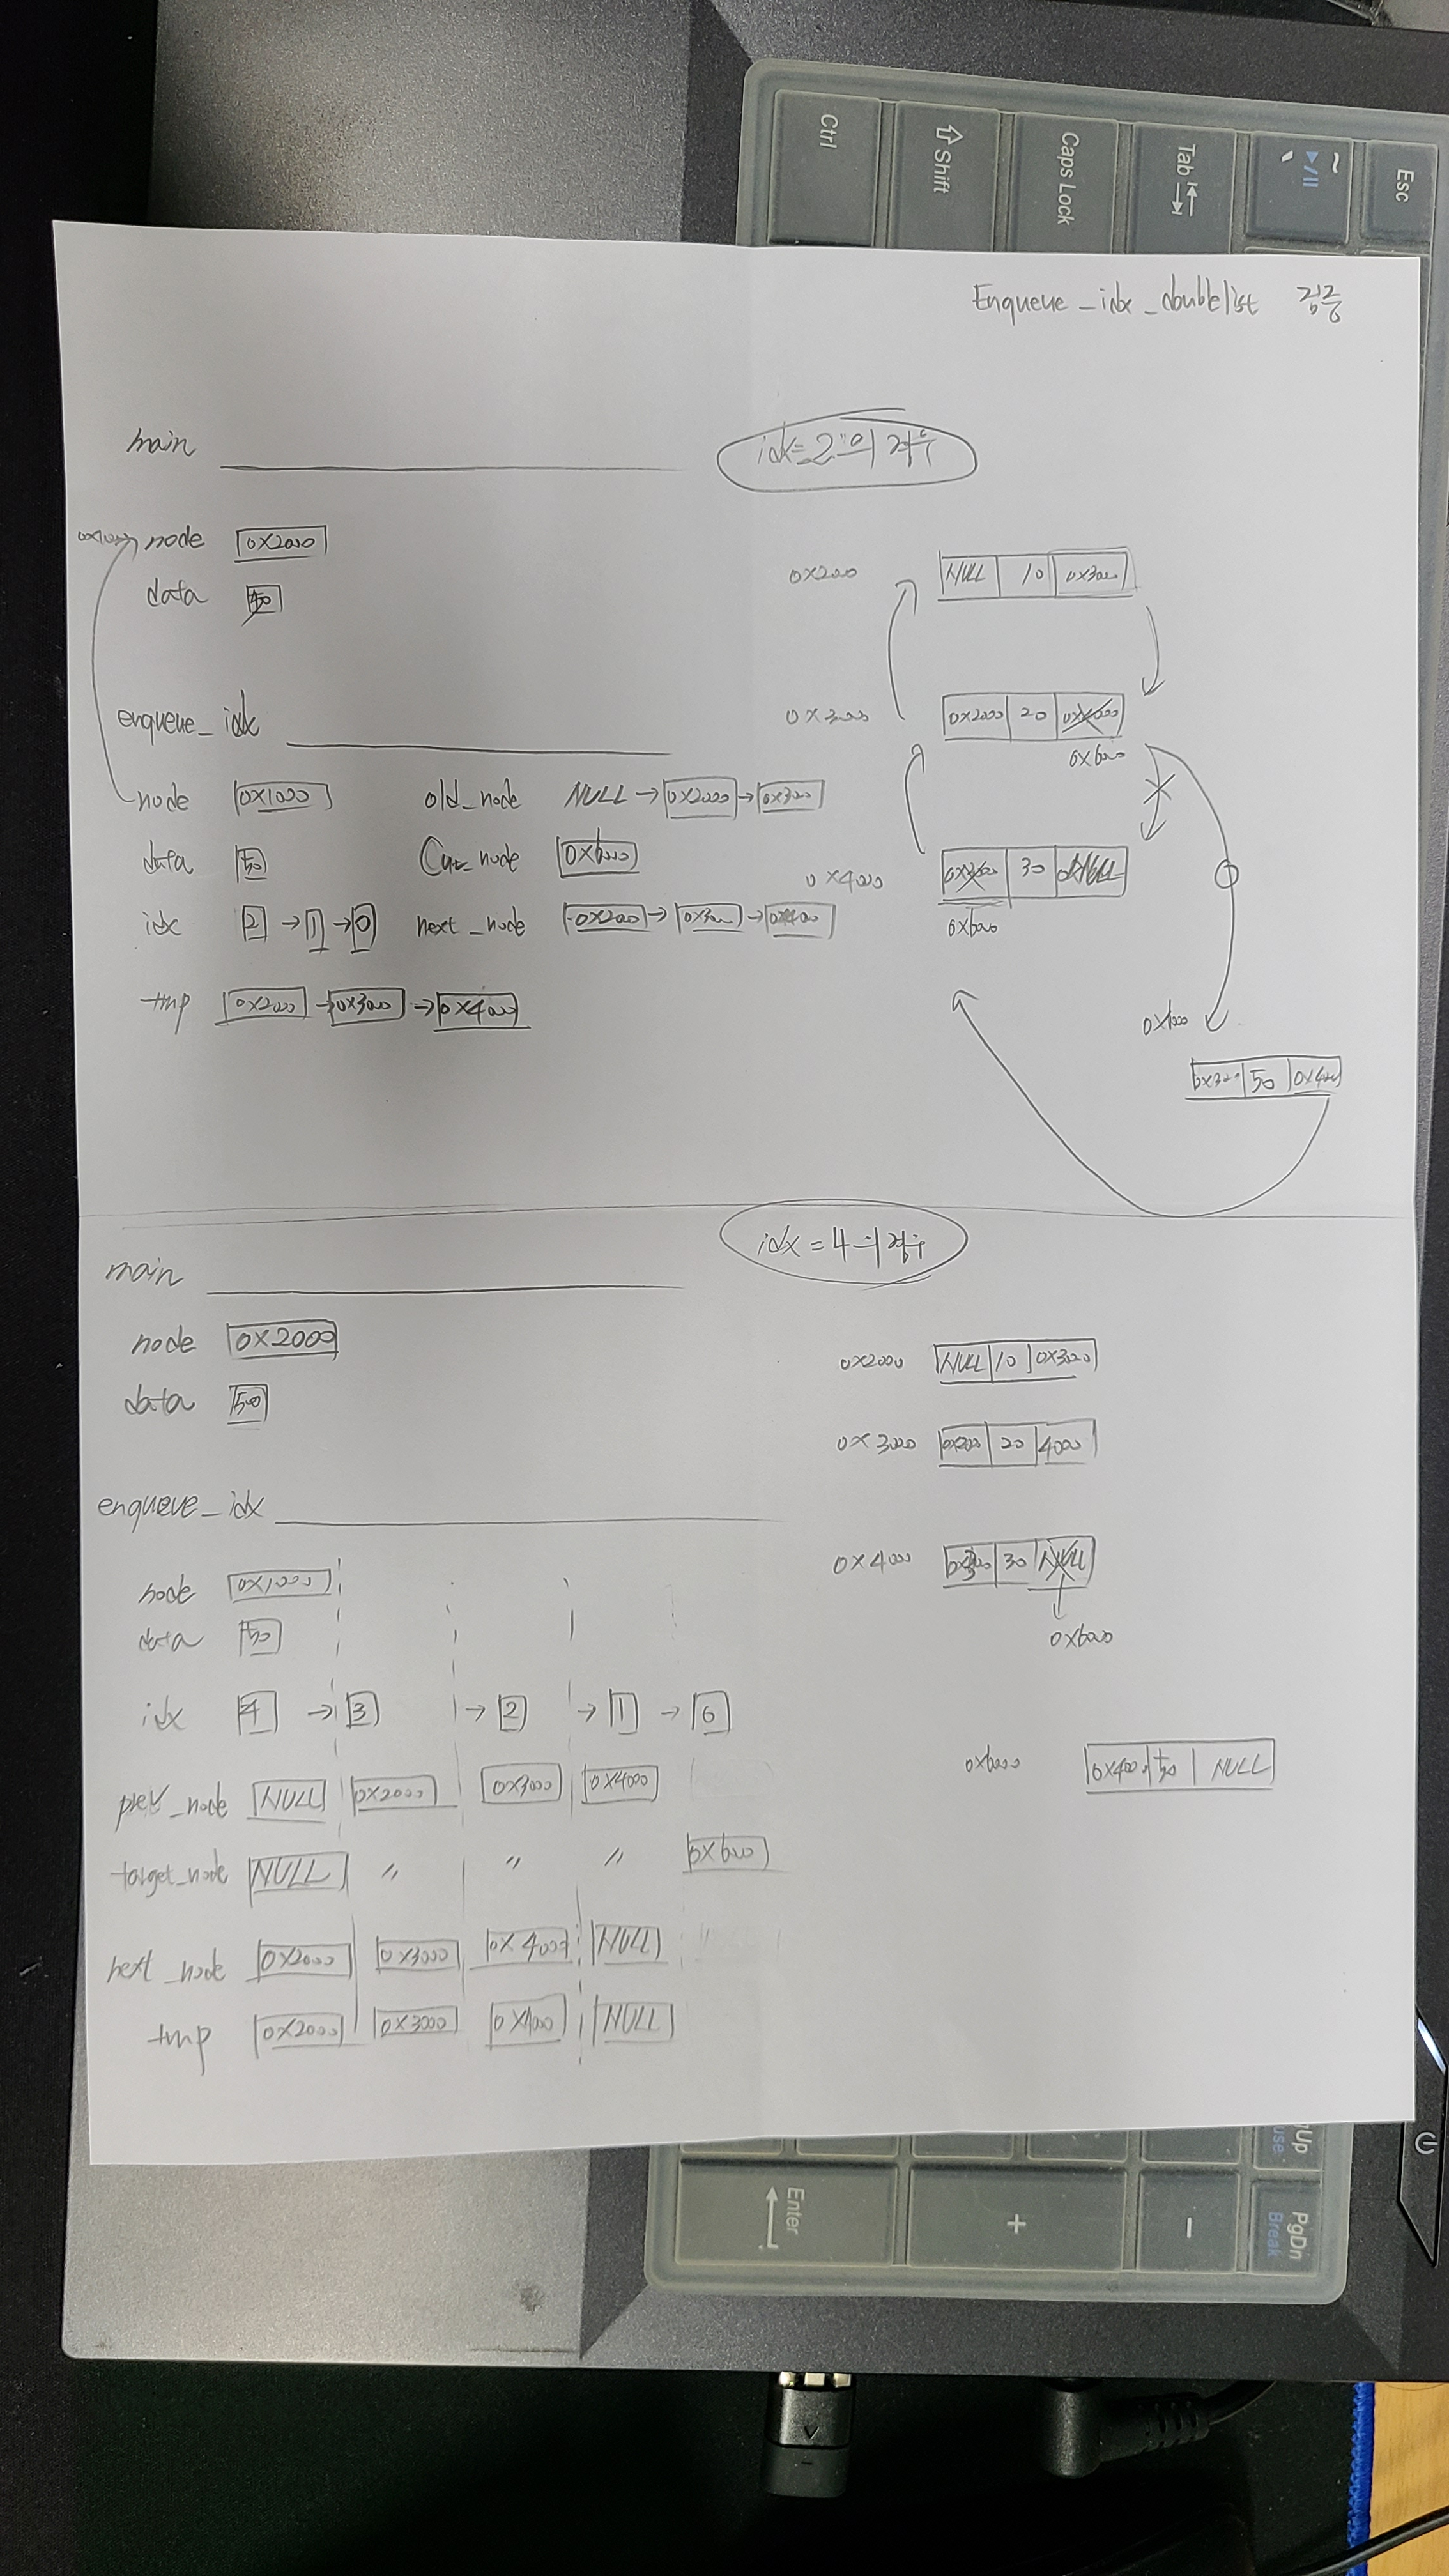 Ctrl
Shift
Caps Lock
Tab
~
`
Esc
Enqueue_idx_doublelist 검증
main
idx=2의 경우
0x1000 node 0x2000
data 50
0x2000 NULL 10 0x3000
enqueue_idx
0x3000 0x2000 20 0x4000
0x6000
node 0x1000 old_node NULL → 0x2000 → 0x3000
data 50 Cur_node 0x6000
0x4000 30 NULL
0x6000
idx 2 → 1 → 0 next_node 0x2000 → 0x3000 → 0x4000
tmp 0x2000 → 0x3000 → 0x4000
0x3000 50 0x4000
idx=4의 경우
main
node 0x2000
data 50
0x2000 NULL 10 0x3000
0x3000 0x2000 20 4000
enqueue_idx
0x4000 30 NULL
0x6000
node 0x1000
data 50
idx 4 → 3 → 2 → 1 → 0
0x6000 0x4000 50 NULL
prev_node NULL 0x2000 0x3000 0x4000
target_node NULL " " " 0x6000
next_node 0x2000 0x3000 0x4000 NULL
tmp 0x2000 0x3000 0x4000 NULL
Enter
+
-
PgDn
Break